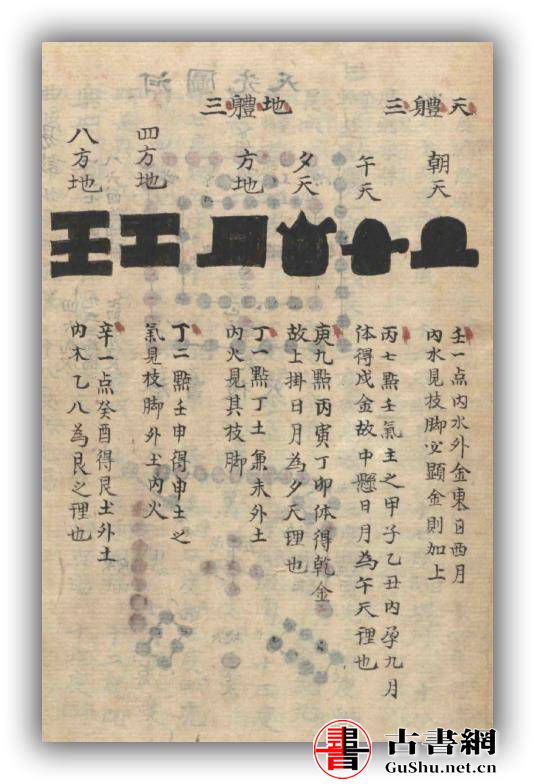 天體三
地體三
朝天
午天
夕天
方地
四方地
八方地
壬一点内水外金東日西月
內水見枝脚必顯金則加上
丙七點壬氣主之甲子乙丑內孕九月
体得戍金故中懸日月為午天理也
庚九點丙寅丁卯体得乾金
故上掛日月為夕天理也
丁一點丁土兼未外土
内火見其枝脚
丁二點壬申得申土之
氣見枝脚外土内火
辛一点癸酉得艮土外土
內木乙八為艮之理也
古書網
GuShu.net.cn